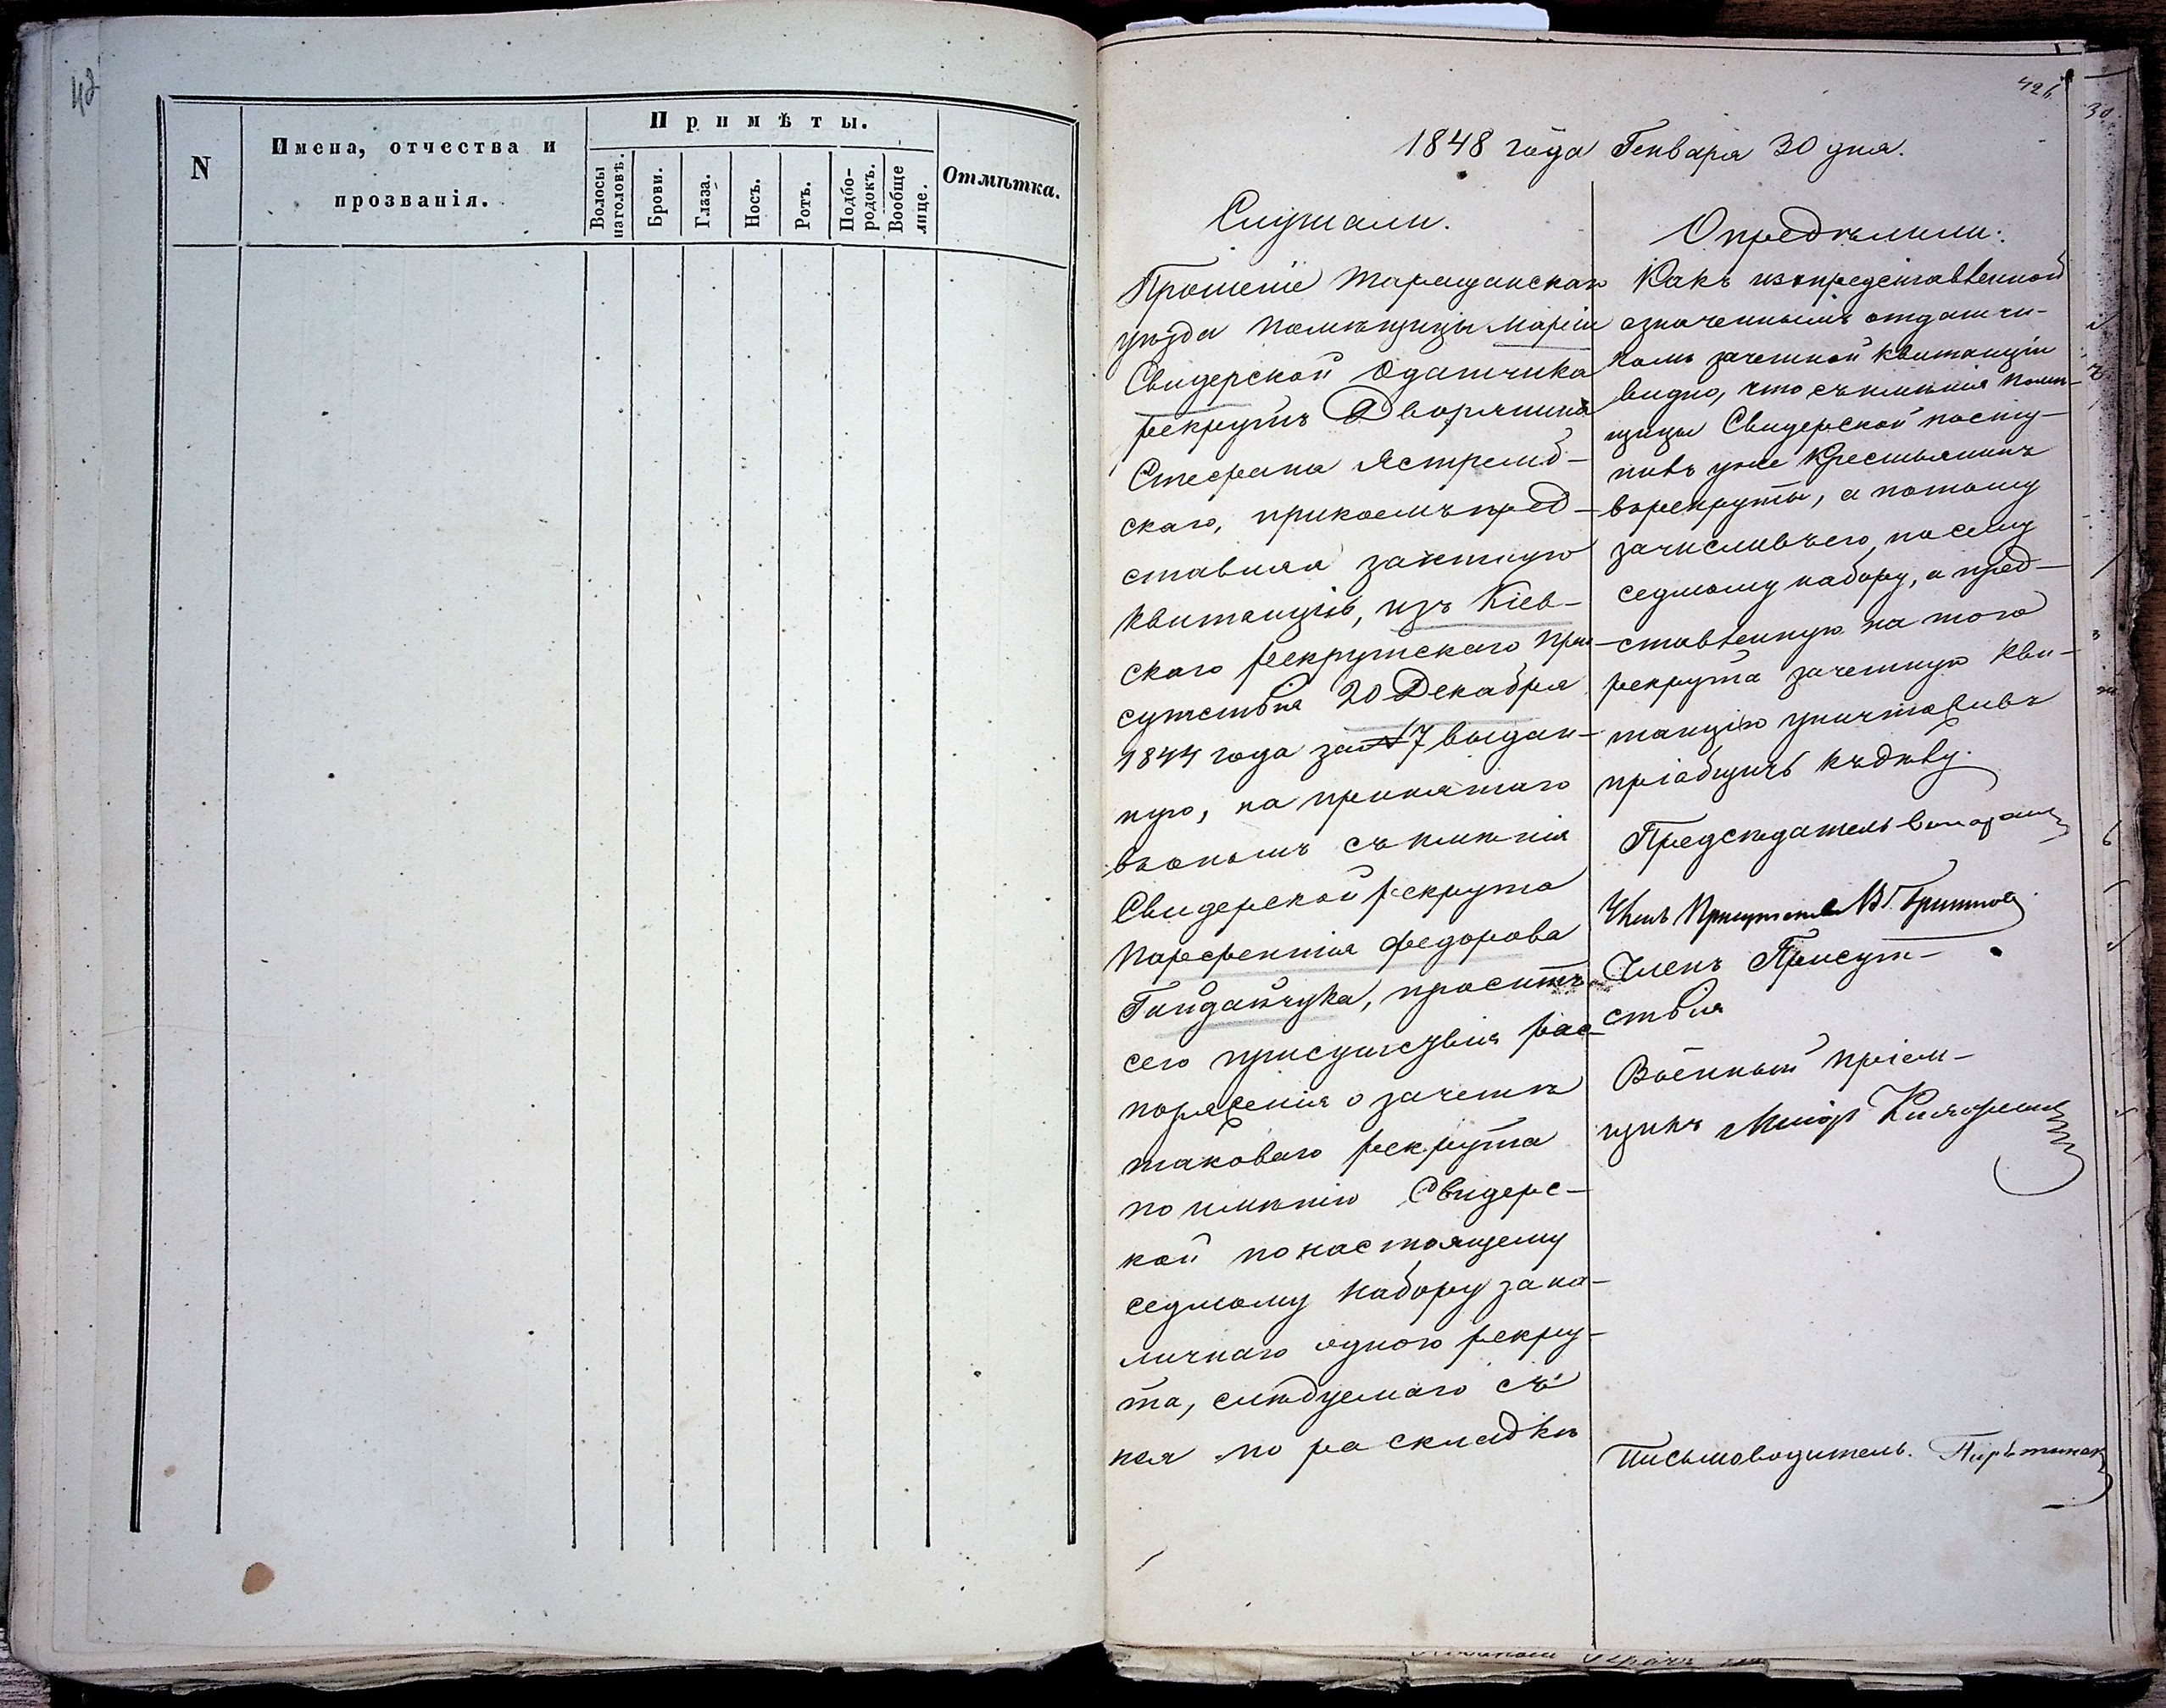 42
N
Имена, отчества и
прозванія.
Примѣты.
Волосы
наголовѣ.
Брови.
Глаза.
Носъ.
Ротъ.
Подбо-
родокъ.
Вообще
лице.
Отмѣтка.
1848 года Генваря 30 дня.
Слушали.
Прошеніе Таращанскаго
уѣзда помѣщицы Маріи
Свидерской Одатчика
рекрутъ Дворянина
Стефана Ястремб-
скаго, прикоемъ пред-
ставляя зачетную
квитанцію, изъ Кіев-
скаго рекрутскаго При-
сутствія 20 Декабря
1844 года за № 7 выдан-
ную, на принятаго
въ ономъ съ имѣнія
Свидерской рекрута
Парфентія Федорова
Гайдайчука, проситъ
сего присутствія рас-
поряженія о зачетѣ
таковаго рекрута
по имѣнію Свидерс-
кой по настоящему
седмому набору за на-
личнаго одного рекру-
та, слѣдуемаго съ
нея по раскладкѣ
Опредѣлили:
Какъ изъ представленной
означеннымъ отдатчи-
комъ зачетной квитанціи
видно, что съ имѣнія помѣ-
щицы Свидерской посту-
пивъ уже Крестьянинъ
въ рекруты, а потому
зачисливъ его, по сему
седмому набору, а пред-
ставленную на того
рекрута зачетную кви-
танцію уничтоживъ
пріобщить къ дѣлу.
Предсѣдатель
Членъ Присутствія
Членъ Присут-
ствія
Военный пріем-
щикъ Маіоръ
Письмоводитель.